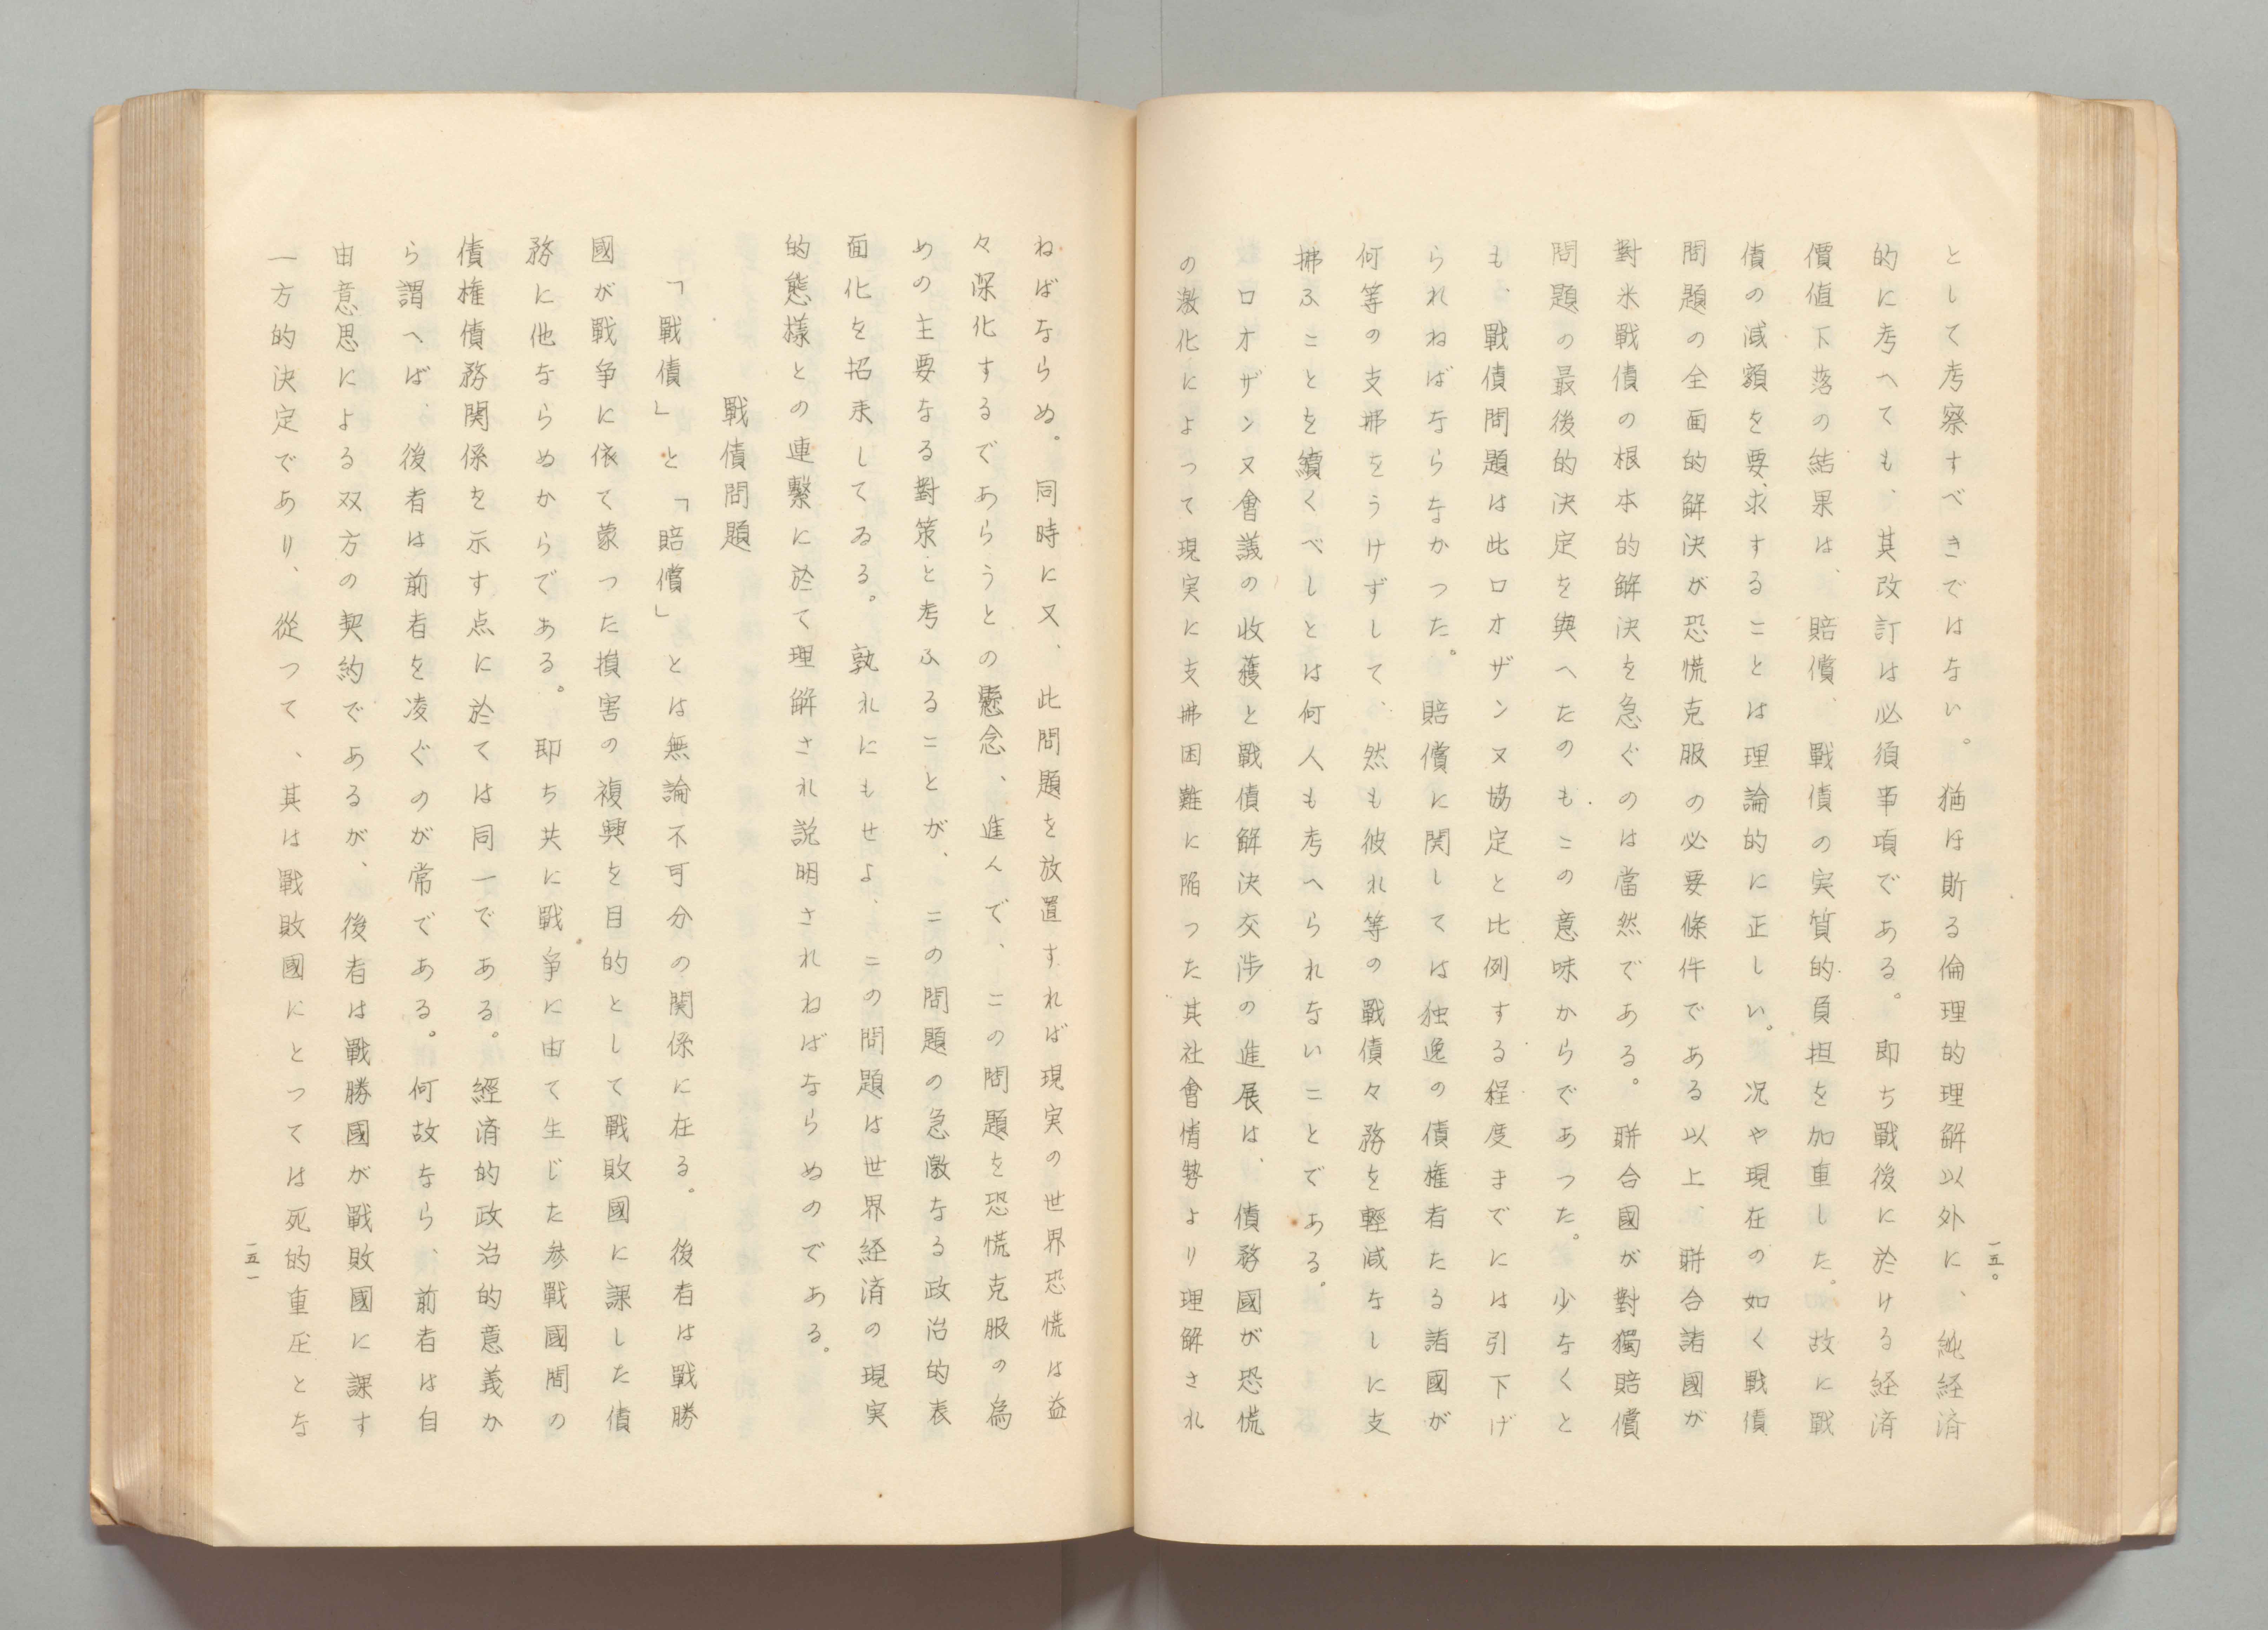 一五〇
として考察すべきではない。猶ほ斯る倫理的理解以外に、純経済
的に考へても、其改訂は必須事項である。即ち戰後に於ける経済
價値下落の結果は、賠償、戰債の実質的負担を加重した。故に戰
債の減額を要求することは理論的に正しい。況や現在の如く戰債
問題の全面的解決が恐慌克服の必要條件である以上、聯合諸國が
對米戰債の根本的解決を急ぐのは當然である。聯合國が對獨賠償
問題の最後的決定を與へたのもこの意味からであつた。少なくと
も、戰債問題は此ロオザンヌ協定と比例する程度までには引下げ
られねばならなかつた。賠償に関しては独逸の債権者たる諸國が
何等の支拂をうけずして、然も彼れ等の戰債々務を輕減なしに支
拂ふことを續くべしとは何人も考へられないことである。
ロオザンヌ會議の收獲と戰債解決交渉の進展は、債務國が恐慌
の激化によって現実に支拂困難に陥つた其社會情勢より理解され
ねばならぬ。同時に又、此問題を放置すれば現実の世界恐慌は益
々深化するであらうとの懸念、進んで、この問題を恐慌克服の為
めの主要なる對策と考ふることが、この問題の急激なる政治的表
面化を招来してゐる。孰れにもせよ、この問題は世界経済の現実
的態様との連繫に於て理解され説明されねばならぬのである。
戰債問題
「戰債」と「賠償」とは無論不可分の関係に在る。後者は戰勝
國が戰争に依て蒙つた損害の複興を目的として戰敗國に課した債
務に他ならぬからである。即ち共に戰争に由て生じた参戰國間の
債権債務関係を示す点に於ては同一である。經済的政治的意義か
ら謂へば、後者は前者を凌ぐのが常である。何故なら、前者は自
由意思による双方の契約であるが、後者は戰勝國が戰敗國に課す
一方的決定であり、從つて、其は戰敗國にとつては死的重圧とな
一五一